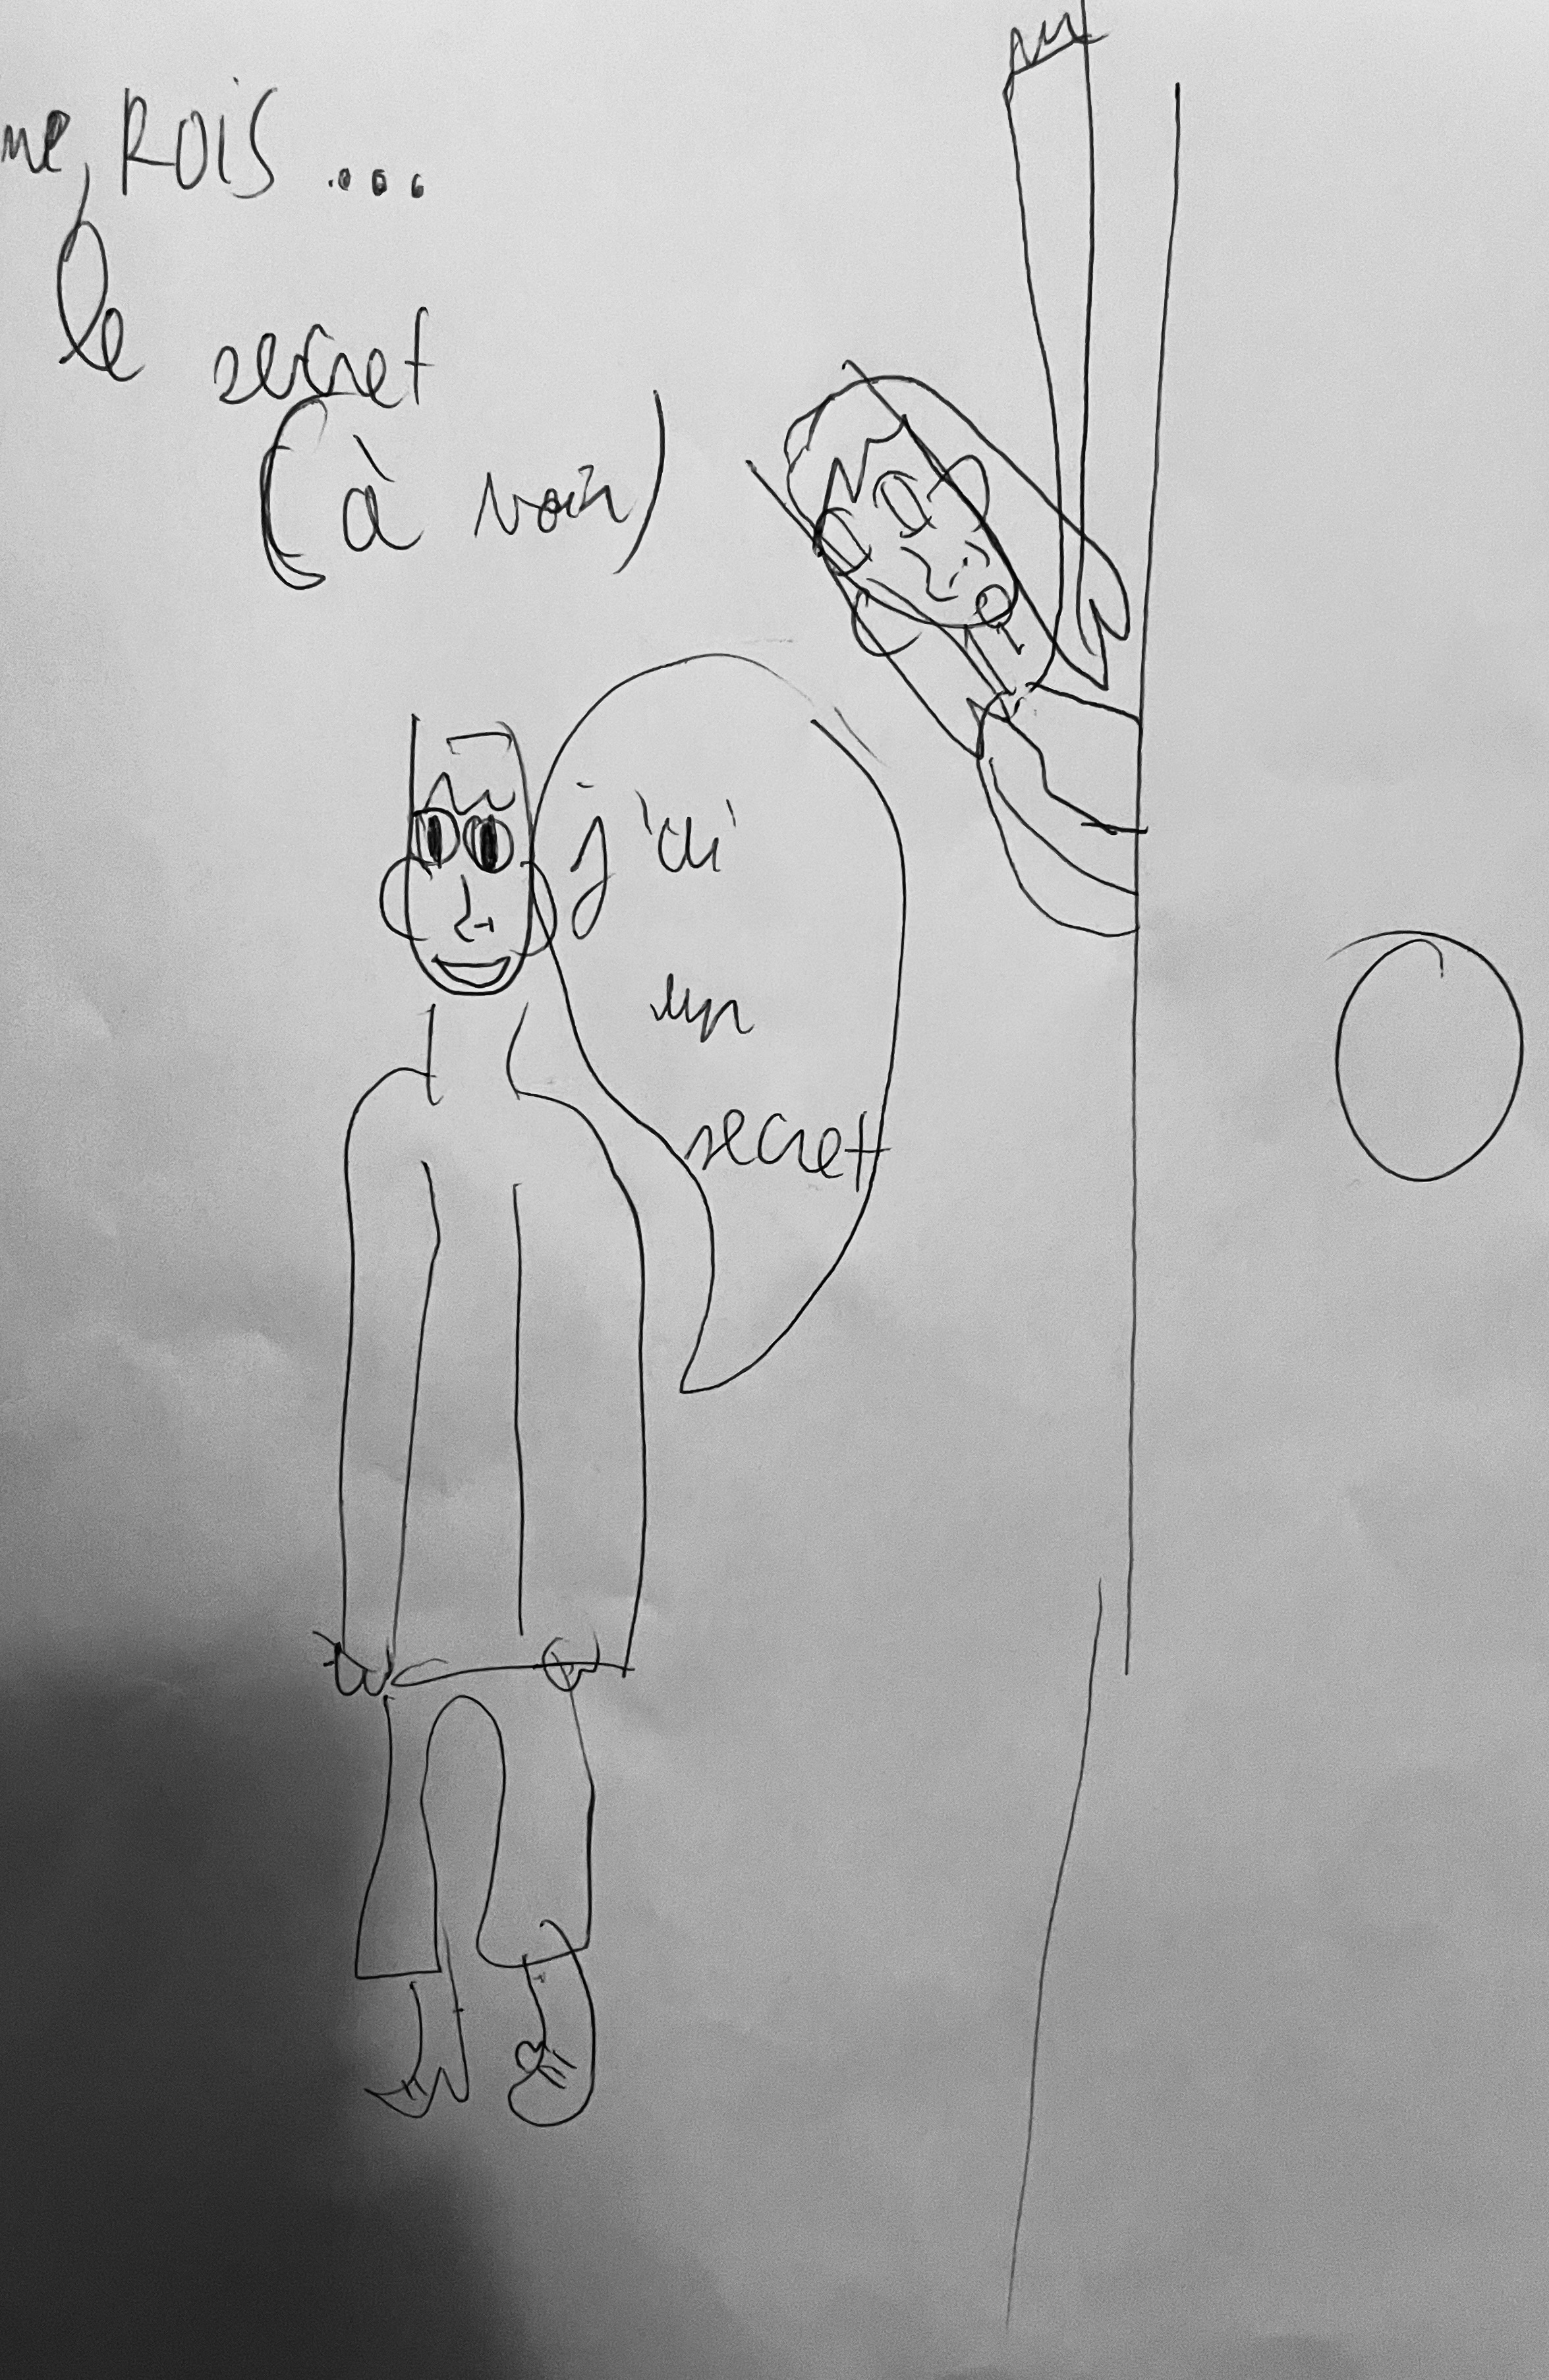 me, ROIS ....
le secret
(à voir)
j'ai
un
secret